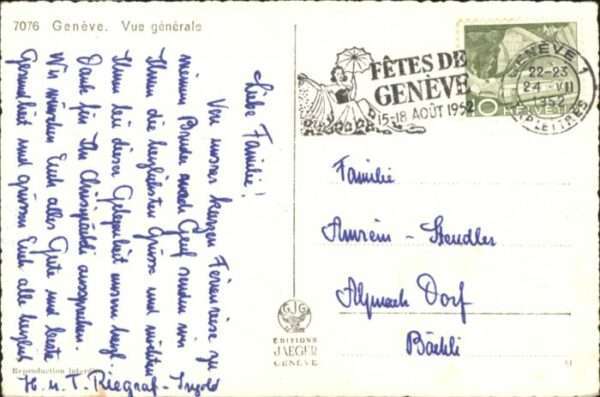 7076 Genève. Vue générale
Liebe Familie!
Von unserer kurzen Ferienreise zu
meinem Bruder nach Genf senden wir
Ihnen die herzlichsten Grüsse und möchten
Ihnen bei dieser Gelegenheit unsern herzl.
Dank für Ihr aussprechen.
Wir wünschen Euch alles Gute und beste
Gesundheit und grüssen Euch alle herzlich
H. u. T. Riegraf-
Reproduction
FÊTES DE
GENÈVE
15-18 AOÛT 1952
GENÈVE 1
22-23
24.-VII
1952
10
Familie
Amrein-Steudler
Alpnach Dorf
Bächli
GJG
EDITIONS
JAEGER
GENÈVE